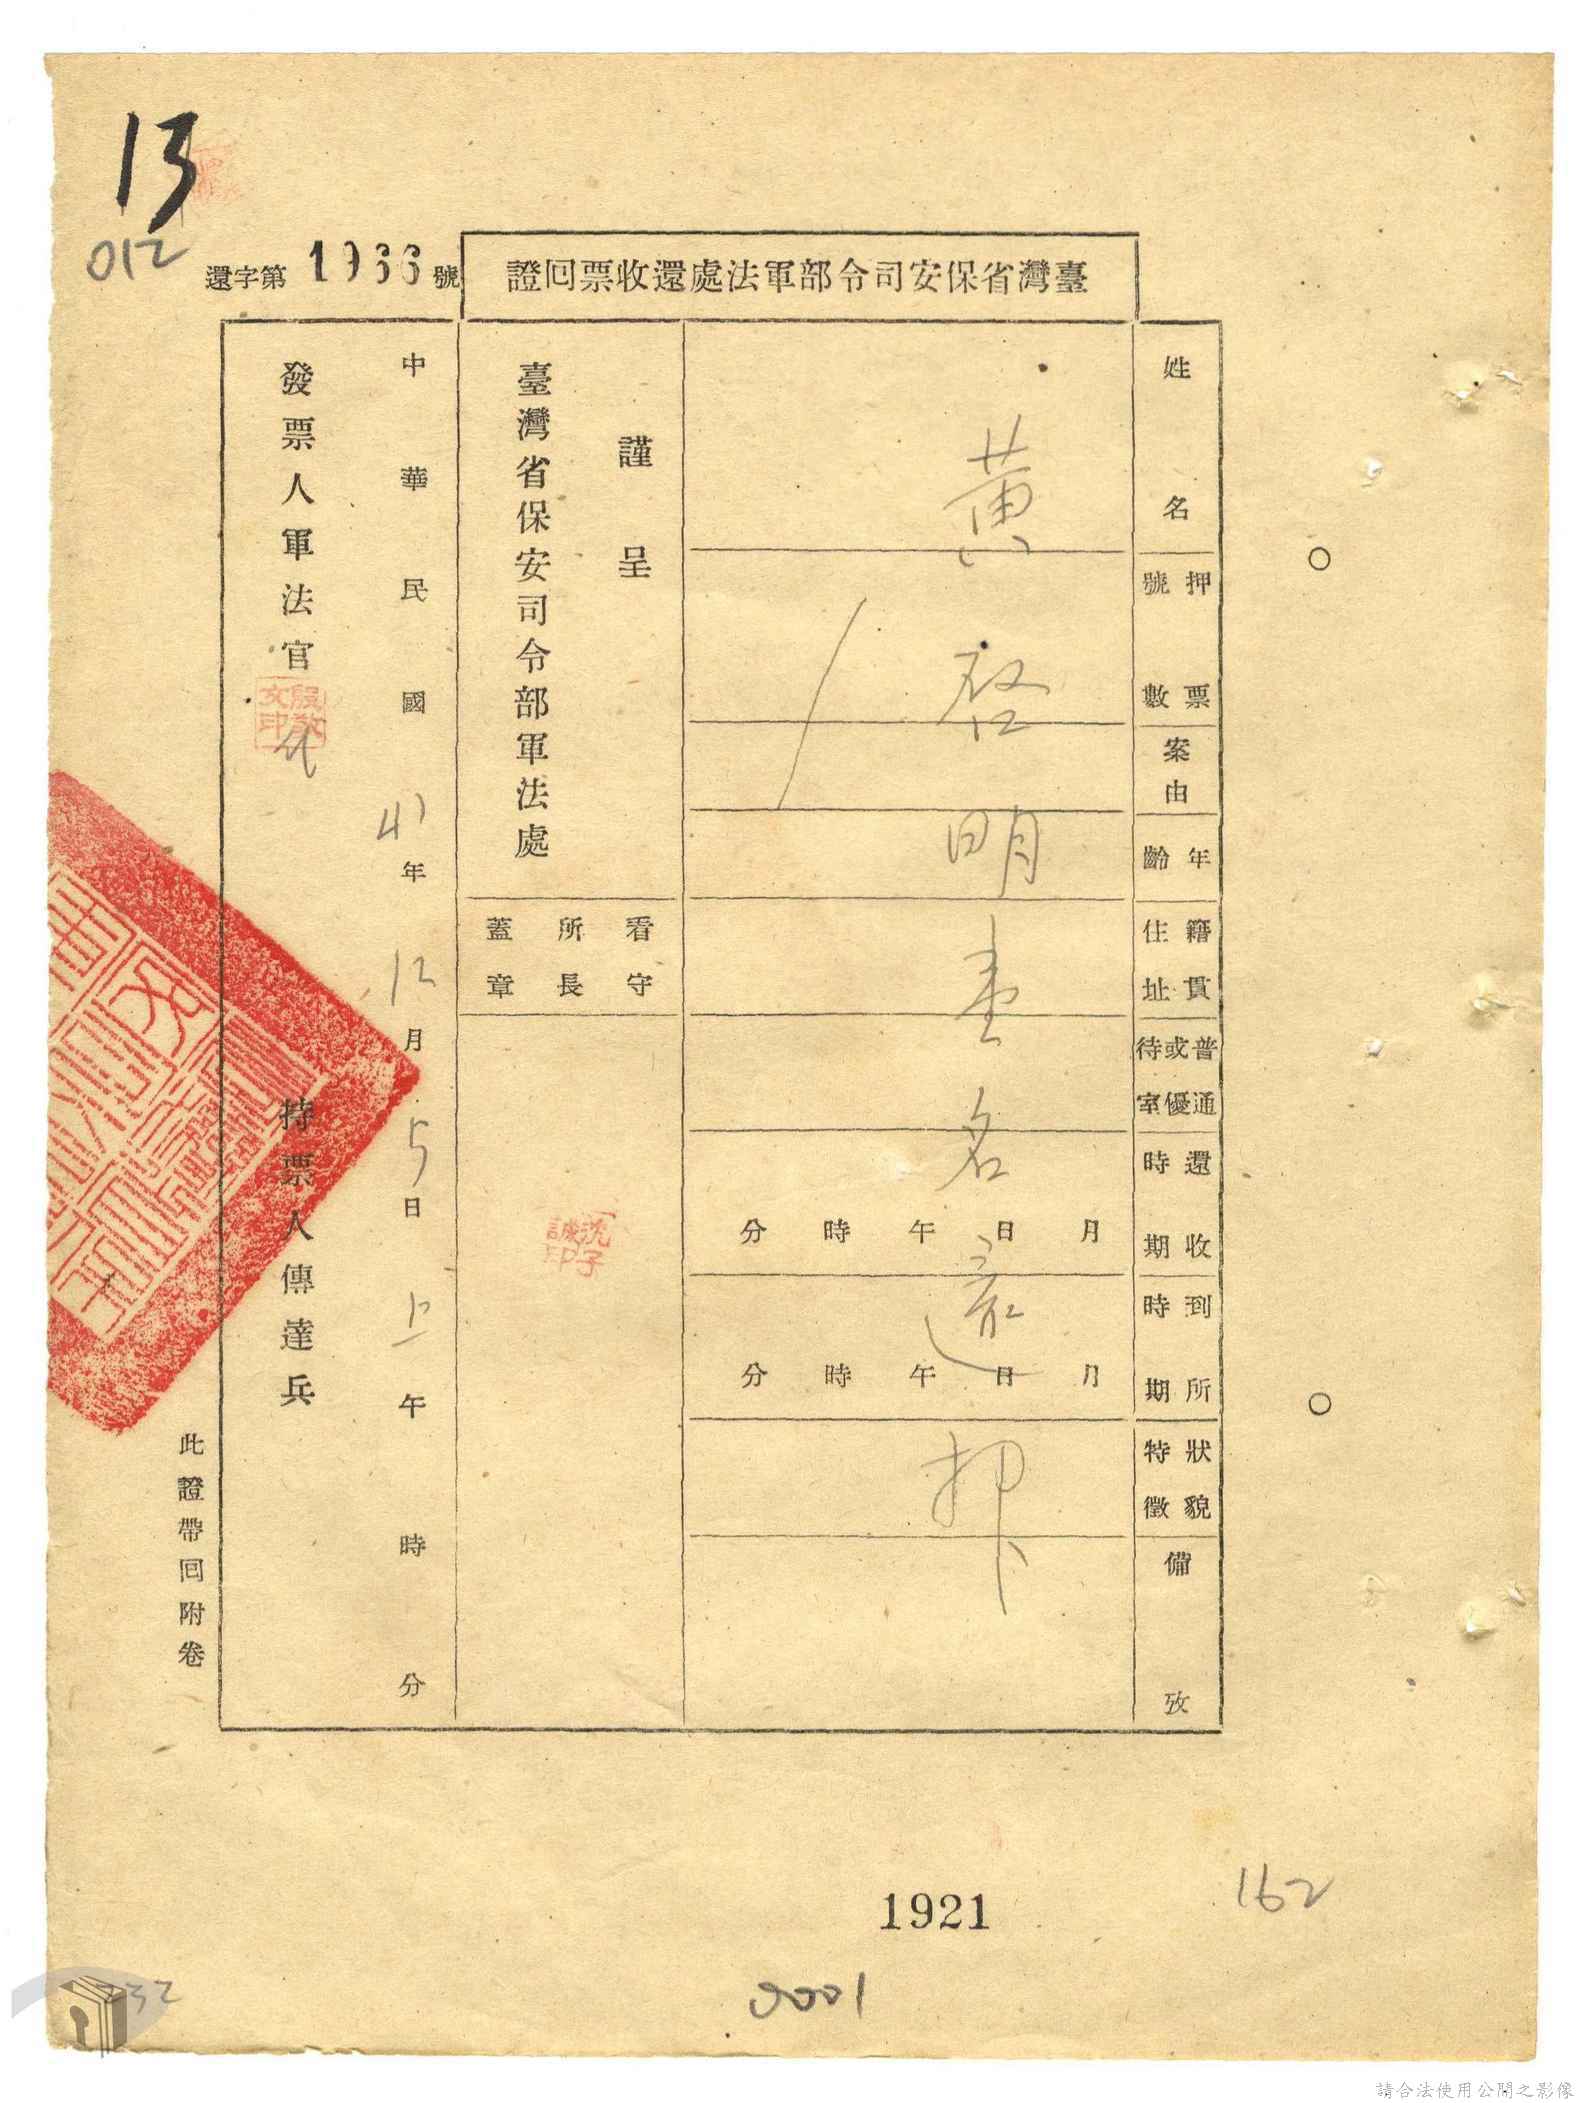 13
012
還字第 1966 號
臺灣省保安司令部軍法處還收票回證
姓名
押票號數
案由
年齡
籍貫住址
普通或優待室
還收時期
到所時期
狀貌特徵
備攷
黃啓明壹名還押
月 日 午 時 分
月 日 午 時 分
謹呈
臺灣省保安司令部軍法處
看守所長蓋章
沈子誠印
中華民國 41 年 12 月 5 日 上 午 時 分
發票人軍法官
殷敬文印 代
持票人傳達兵
此證帶回附卷
1921
162
0001
232
請合法使用公開之影像